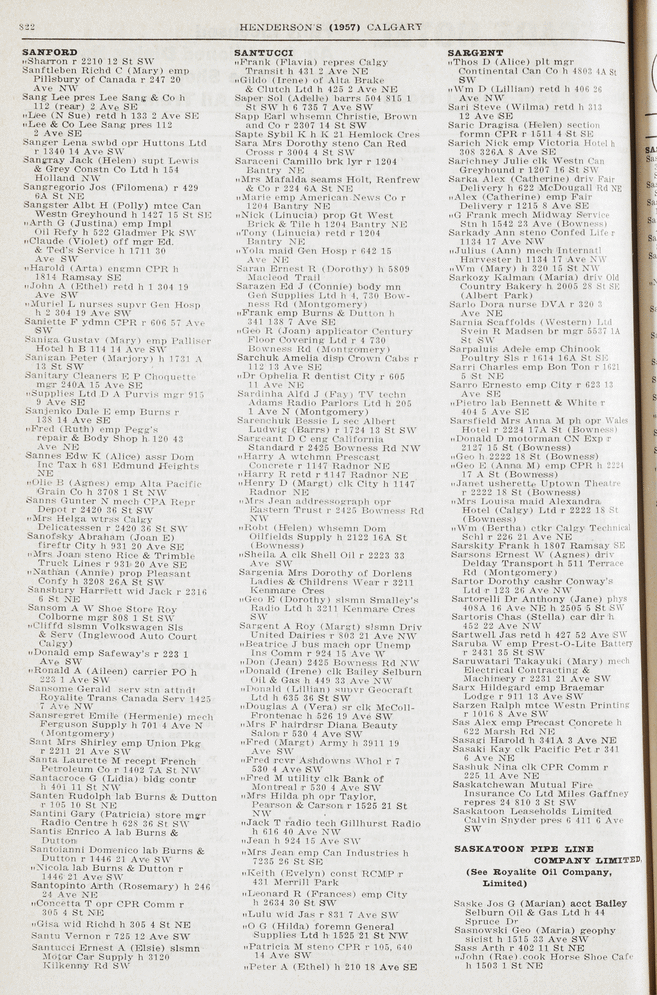 822
HENDERSON'S (1957) CALGARY
SANFORD
„Sharron r 2210 12 St SW
Sanftleben Richd C (Mary) emp
Pillsbury of Canada r 247 20
Ave NW
Sang Lee pres Lee Sang & Co h
112 (rear) 2 Ave SE
„Lee (N Sue) retd h 133 2 Ave SE
„Lee & Co Lee Sang pres 112
2 Ave SE
Sanger Lena swbd opr Huttons Ltd
r 1340 14 Ave SW
Sangray Jack (Helen) supt Lewis
& Grey Constn Co Ltd h 154
Holland NW
Sangregorio Jos (Filomena) r 429
6A St NE
Sangster Albt H (Polly) mtce Can
Westn Greyhound h 1427 15 St SE
„Arth G (Justina) emp Impl
Oil Refy h 522 Gladmer Pk SW
„Claude (Violet) off mgr Ed.
& Ted's Service h 1711 30
Ave SW
„Harold (Arta) engmn CPR h
1814 Ramsay SE
„John A (Ethel) retd h 1 304 19
Ave SW
„Muriel L nurses supvr Gen Hosp
h 2 304 19 Ave SW
Saniette F ydmn CPR r 606 57 Ave
SW
Saniga Gustav (Mary) emp Palliser
Hotel h B 114 14 Ave SW
Sanigan Peter (Marjory) h 1731 A
13 St SW
Sanitary Cleaners E P Choquette
mgr 240A 15 Ave SE
„Supplies Ltd D A Purvis mgr 915
9 Ave SE
Sanjenko Dale E emp Burns r
138 14 Ave SW
„Fred (Ruth) emp Pegg's
repair & Body Shop h 120 43
Ave NW
Sannes Edw K (Alice) assr Dom
Inc Tax h 681 Edmund Heights
NE
„Olie B (Agnes) emp Alta Pacific
Grain Co h 3708 1 St NW
Sanns Gunter N mech CPA Repr
Depot r 2420 36 St SW
„Mrs Helga wtrss Calgy
Delicatessen r 2420 36 St SW
Sanofsky Abraham (Joan E)
fireftr City h 931 20 Ave SE
„Mrs Joan steno Rice & Trimble
Truck Lines r 931 20 Ave SE
„Nathan (Annie) prop Pleasant
Confy h 3208 26A St SW
Sansbury Harriett wid Jack r 2316
6 St NE
Sansom A W Shoe Store Roy
Colborne mgr 808 1 St SW
„Cliffd slsmn Volkswagen Sls
& Serv (Inglewood Auto Court
Calgy)
„Donald emp Safeway's r 223 1
Ave SW
„Ronald A (Aileen) carrier PO h
223 1 Ave SW
Sansome Gerald serv stn attndt
Royalite Trans Canada Serv 1425
7 Ave NW
Sansregret Emile (Hermenie) mech
Ferguson Supply h 701 4 Ave N
(Montgomery)
Sant Mrs Shirley emp Union Pkg
r 2211 21 Ave SW
Santa Laurette M recept French
Petroleum Co r 1402 7A St NW
Santacroce G (Lidia) bldg contr
h 401 11 St NW
Santen Rudolph lab Burns & Dutton
r 105 10 St NE
Santini Gary (Patricia) store mgr
Radio Centre h 628 36 St SW
Santis Enrico A lab Burns &
Dutton
Santoianni Domenico lab Burns &
Dutton r 1446 21 Ave SW
„Nicola lab Burns & Dutton r
1446 21 Ave SW
Santopinto Arth (Rosemary) h 246
24 Ave NE
„Concetta T opr CPR Comm r
305 4 St NE
„Gisa wid Richd h 305 4 St NE
Santu Vernon r 725 12 Ave SW
Santucci Ernest A (Elsie) slsmn
Motor Car Supply h 3120
Kilkenny Rd SW
SANTUCCI
„Frank (Flavia) repres Calgy
Transit h 431 2 Ave NE
„Gildo (Irene) of Alta Brake
& Clutch Ltd h 425 2 Ave NE
Saper Sol (Adelle) barrs 504 815 1
St SW h 6 735 7 Ave SW
Sapp Earl whsemn Christie, Brown
and Co r 2307 14 St SW
Sapte Sybil K h K 21 Hemlock Cres
Sara Mrs Dorothy steno Can Red
Cross r 3004 4 St SW
Saraceni Camillo brk lyr r 1204
Bantry NE
„Mrs Mafalda seams Holt, Renfrew
& Co r 224 6A St NE
„Marie emp American News Co r
1204 Bantry NE
„Nick (Linucia) prop Gt West
Brick & Tile h 1204 Bantry NE
„Tony (Linucia) retd r 1204
Bantry NE
„Yola maid Gen Hosp r 642 15
Ave NE
Saran Ernest R (Dorothy) h 5809
Macleod Trail
Sarazen Ed J (Connie) body mn
Gen Supplies Ltd h 4, 730 Bow-
ness Rd (Montgomery)
„Frank emp Burns & Dutton h
341 138 7 Ave SW
„Geo R (Joan) applicator Century
Floor Covering Ltd r 4 730
Bowness Rd (Montgomery)
Sarchuk Amelia disp Crown Cabs r
112 13 Ave SE
„Dr Ophelia R dentist City r 605
11 Ave NE
Sardinha Alfd J (Fay) TV techn
Adams Radio Parlors Ltd h 205
1 Ave N (Montgomery)
Sarenchuk Bessie L sec Albert
Ludwig (Barrs) r 1724 13 St SW
Sargeant D C eng California
Standard r 2425 Bowness Rd NW
„Harry A wtchmn Prescast
Concrete r 1147 Radnor NE
„Harry R retd r 1147 Radnor NE
„Henry D (Margt) clk City h 1147
Radnor NE
„Mrs Jean addressograph opr
Eastern Trust r 2425 Bowness Rd
NW
„Robt (Helen) whsemn Dom
Oilfields Supply h 2122 16A St
(Bowness)
„Sheila A clk Shell Oil r 2223 33
Ave SW
Sargenia Mrs Dorothy of Dorlens
Ladies & Childrens Wear r 3211
Kenmare Cres
„Geo E (Dorothy) slsmn Smalley's
Radio Ltd h 3211 Kenmare Cres
SW
Sargent A Roy (Margt) slsmn Driv
United Dairies r 803 21 Ave NW
„Beatrice J bus mach opr Unemp
Ins Comm r 924 15 Ave W
„Don (Jean) 2425 Bowness Rd NW
„Donald (Irene) clk Bailey Selburn
Oil & Gas h 449 33 Ave NW
„Donald (Lillian) supvr Geocraft
Ltd h 635 36 St SW
„Douglas A (Vera) sr clk McColl-
Frontenach h 526 19 Ave SW
„Mrs F hairdrsr Diana Beauty
Salon r 530 4 Ave SW
„Fred (Margt) Army h 3911 19
Ave SW
„Fred rcvr Ashdowns Whol r 7
530 4 Ave SW
„Fred M utility clk Bank of
Montreal r 530 4 Ave SW
„Mrs Hilda ph opr Taylor,
Pearson & Carson r 1525 21 St
NW
„Jack T radio tech Gillhurst Radio
h 616 40 Ave NW
„Jean h 924 15 Ave W
„Mrs Jean emp Can Industries h
7235 26 St SE
„Keith (Evelyn) const RCMP r
431 Merrill Park
„Leonard R (Frances) emp City
h 2634 30 St SW
„Lulu wid Jas r 831 7 Ave SW
„O G (Hilda) foremn General
Supplies Ltd h 1525 21 St NW
„Patricia M steno CPR r 105, 640
14 Ave SW
„Peter A (Ethel) h 210 18 Ave SE
SARGENT
„Thos D (Alice) plt mgr
Continental Can Co h 4803 4A St
SW
„Wm D (Lillian) retd h 406 26
Ave NW
Sari Steve (Wilma) retd h 313
12 Ave SE
Saric Dragisa (Helen) section
formn CPR r 1511 4 St SE
Sarich Nick emp Victoria Hotel h
308 326A 8 Ave SE
Sarichney Julie clk Westn Can
Greyhound r 1207 16 St SW
Sarka Alex (Catherine) driv Fair
Delivery h 622 McDougall Rd NE
„Alex (Catherine) emp Fair
Delivery r 1215 8 Ave SW
„G Frank mech Midway Service
Stn h 1542 23 Ave (Bowness)
Sarkady Ann steno Confed Life r
1134 17 Ave NW
„Julius (Ann) mech Internatl
Harvester h 1134 17 Ave NW
„Wm (Mary) h 320 15 St NW
Sarkozy Kalman (Maria) driv Old
Country Bakery h 2005 28 St SE
(Albert Park)
Sarlo Dora nurse DVA r 320 3
Ave NE
Sarnia Scaffolds (Western) Ltd
Svein R Madsen br mgr 5537 1A
St SW
Sarpalnis Adele emp Chinook
Poultry Sls r 1614 16A St SE
Sarri Charles emp Bon Ton r 1621
5 St NE
Sarro Ernesto emp City r 623 13
Ave SE
„Pietro lab Bennett & White r
404 5 Ave SE
Sarsfield Mrs Anna M ph opr Wales
Hotel r 2224 17A St (Bowness)
„Donald D motorman CN Exp r
2127 15 St (Bowness)
„Geo h 2222 18 St (Bowness)
„Geo E (Anna M) emp CPR h 2224
17 A St (Bowness)
„Janet usherette Uptown Theatre
r 2222 18 St (Bowness)
„Mrs Louisa maid Alexandra
Hotel (Calgy) Ltd r 2222 18 St
(Bowness)
„Wm (Bertha) ctkr Calgy Technical
Schl r 226 21 Ave NW
Sarskity Frank h 1807 Ramsay SE
Sarsons Ernest W (Agnes) driv
Delday Transport h 511 Terrace
Rd (Montgomery)
Sartor Dorothy cashr Conway's
Ltd r 123 26 Ave NW
Sartorelli Dr Anthony (Jane) phys
408A 16 Ave NE h 2505 5 St SW
Sartoris Chas (Stella) car dlr h
452 22 Ave NW
Sartwell Jas retd h 427 52 Ave SW
Saruba W emp Prest-O-Lite Battery
r 2431 35 St SW
Saruwatari Takayuki (Mary) mech
Electrical Contracting &
Machinery r 2231 21 Ave SW
Sarx Hildegard emp Braemar
Lodge r 911 13 Ave SW
Sarzen Ralph mtce Westn Printing
r 1016 8 Ave SW
Sas Alex emp Precast Concrete h
622 Marsh Rd NE
Sasagi Harold h 341A 3 Ave NE
Sasaki Kay clk Pacific Pet r 341
6 Ave NE
Sashuk Nina clk CPR Comm r
225 11 Ave NE
Saskatchewan Mutual Fire
Insurance Co Ltd Miles Gaffney
repres 24 810 3 St SW
Saskatoon Leaseholds Limited
Calvin Snyder pres 6 411 6 Ave
SW
SASKATOON PIPE LINE
COMPANY LIMITED,
(See Royalite Oil Company,
Limited)
Saske Jos G (Marian) acct Bailey
Selburn Oil & Gas Ltd h 44
Spruce Dr
Sasnowski Geo (Maria) geophy
sicist h 1515 33 Ave SW
Sass Arth r 402 11 St NE
„John (Rae) cook Horse Shoe Cafe
h 1503 1 St NE